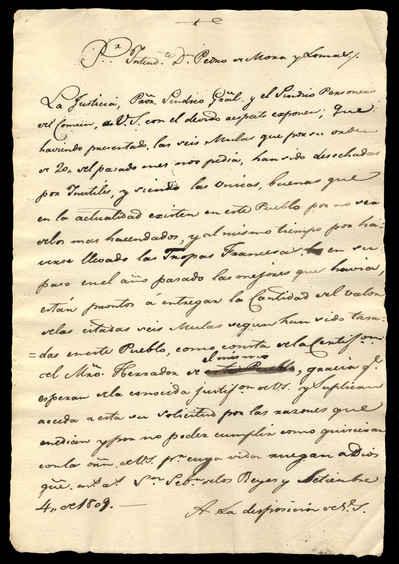 Intend.e D.n Pedro de Mora y Lomas
La Justicia, Pror. Sindico Gral. y el Sindico Personero
del Comun, de V.S. con el devido respeto exponen; que
haviendo presentado, las seis Mulas que por su orden
de 20 del pasado mes nos pedia, han sido desechadas
por Inutiles, y siendo las Unicas, buenas que
en la actualidad existen en este Pueblo por no ser
de los mas hacendados, y al mismo tiempo por ha-
verse llevado las Tropas Francesas en su
paso en el año pasado las mejores que havia,
están prontos a entregar la Cantidad del valor
de las citadas seis Mulas segun han sido tasa-
das en este Pueblo, como consta de la Certif.on
del Mro. Herrador de el mismo, gracia q.e
esperan de la conocida justif.on de V.S. y suplican
acceda a esta su solicitud por las razones que
median y por no poder cumplir como quisieran
con la orn. de V.S. p.r cuya vida ruegan a Dios
gue. m.s a.s S.n Seb.n de los Reyes y Setiembre
4,, de 1809.
A La disposicion de V.S.